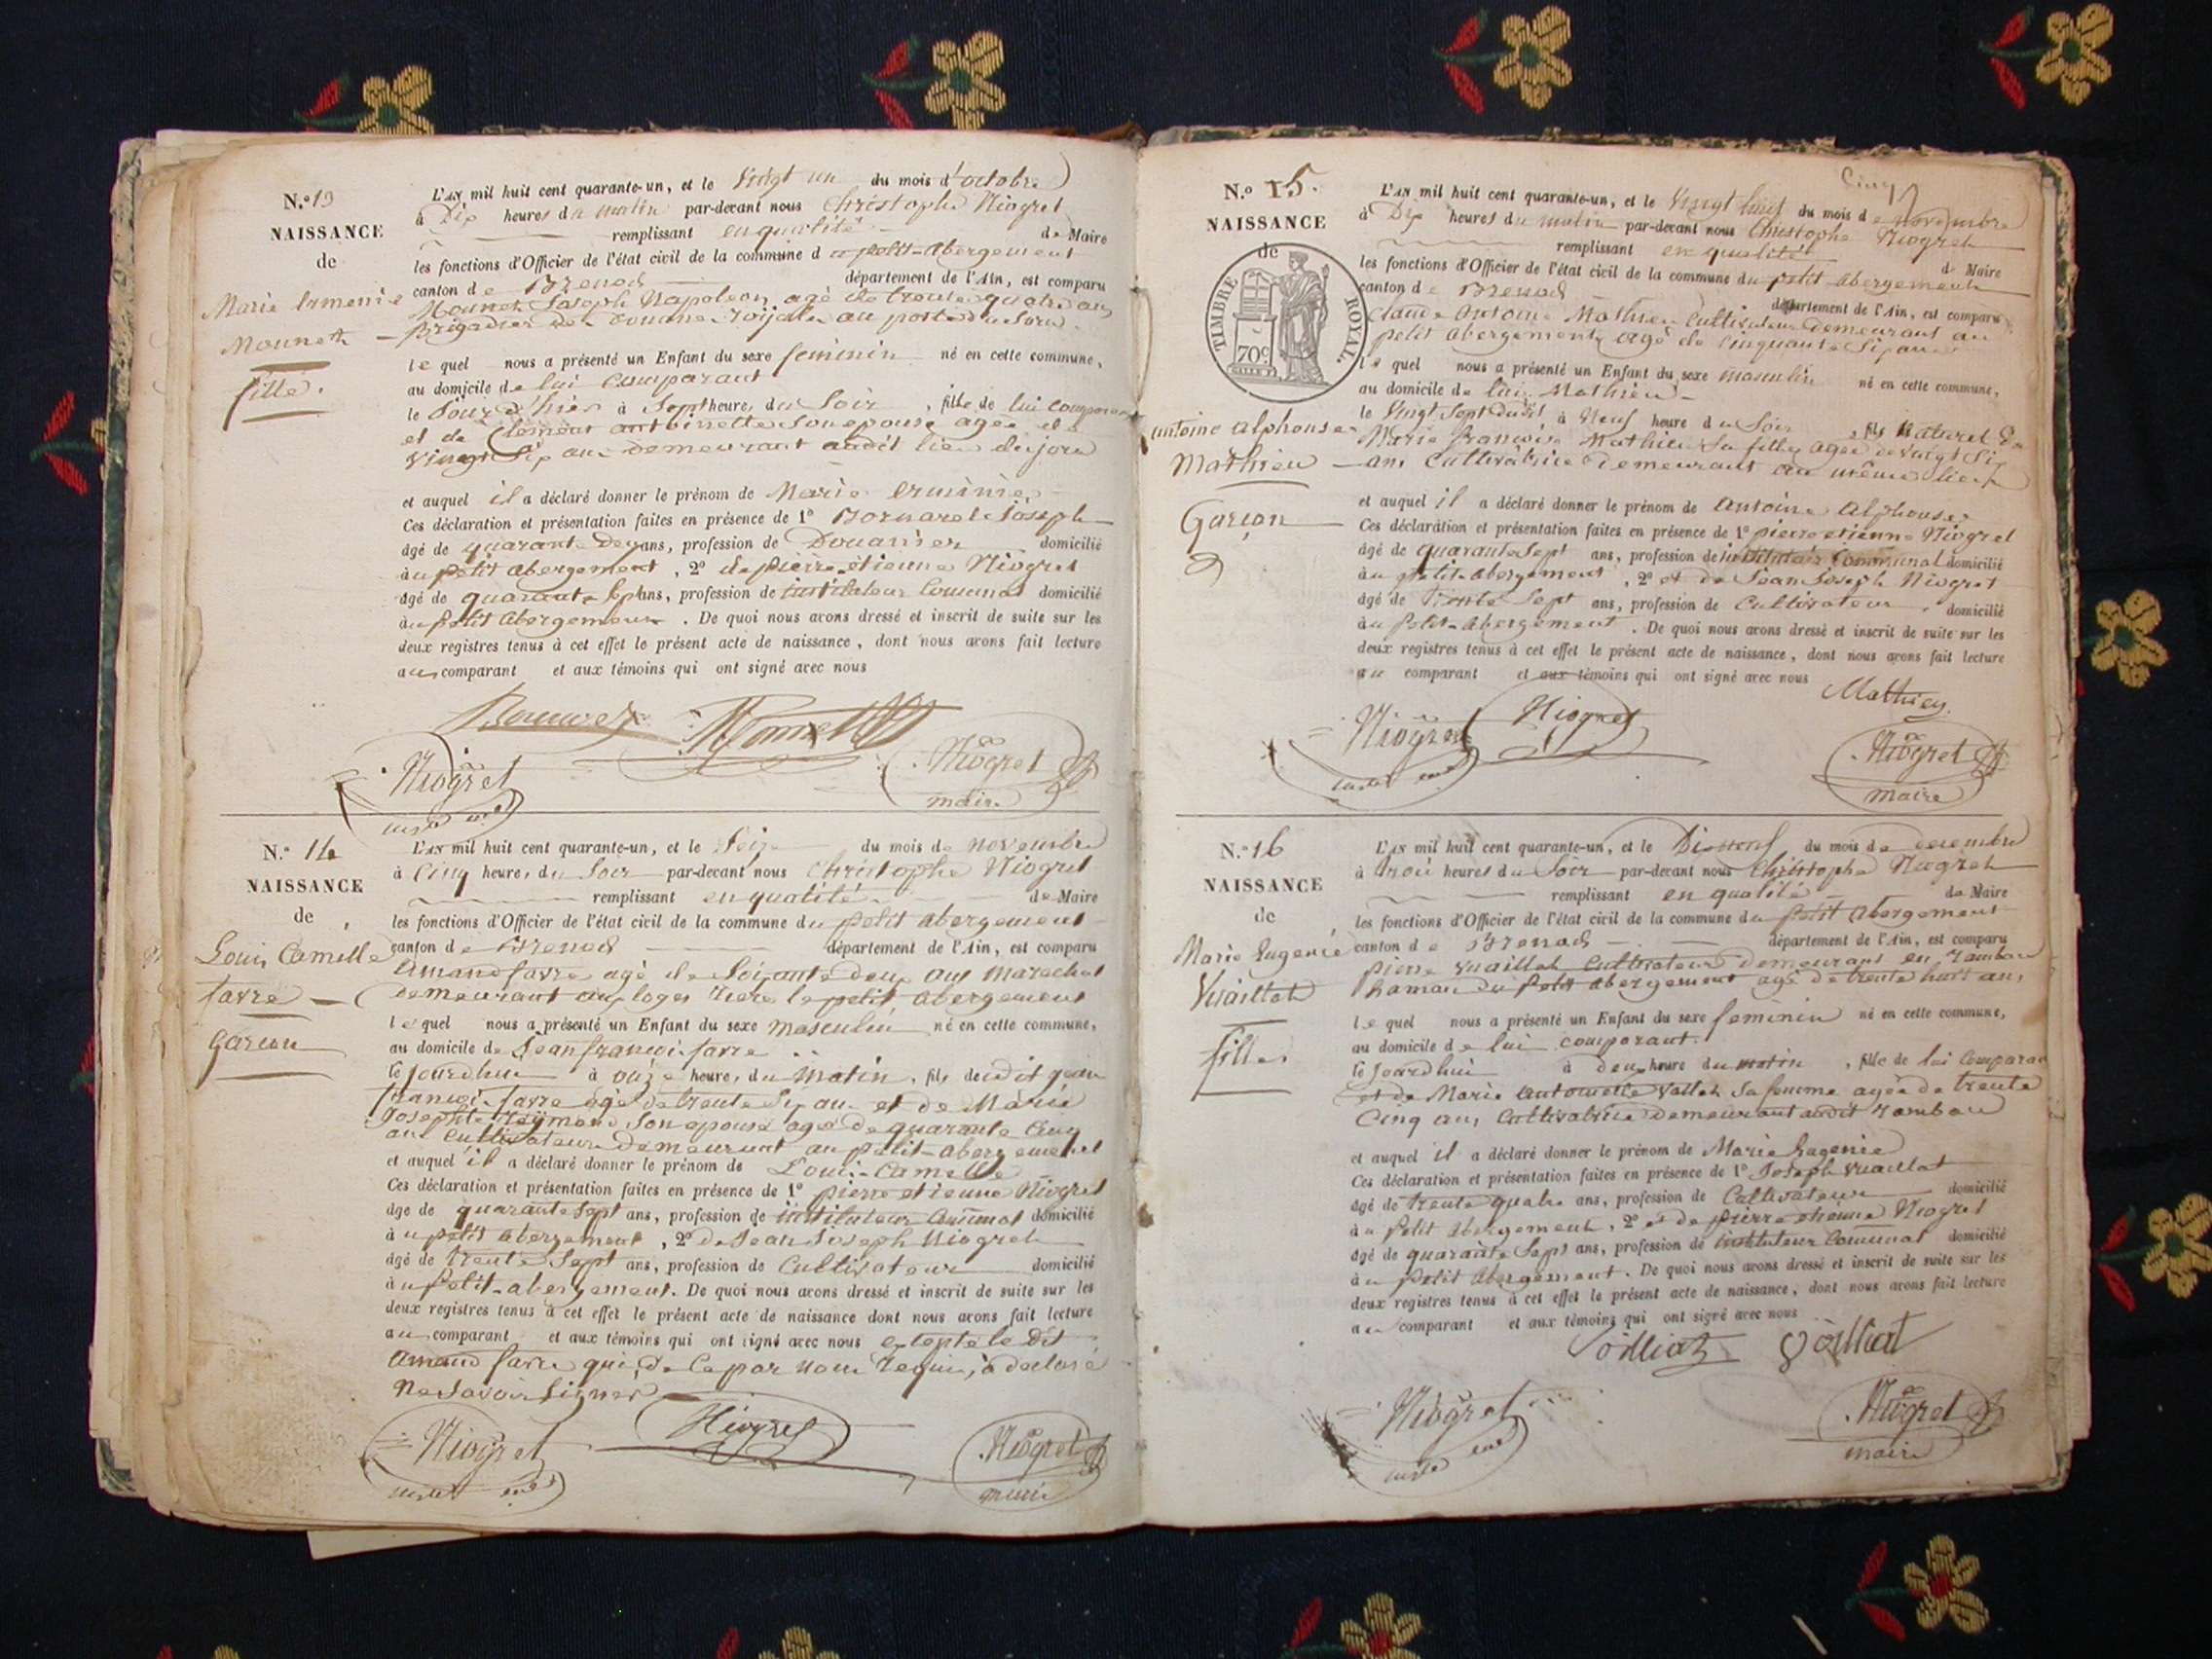 N.º 13
NAISSANCE
de
Marie Ermenie
Mounet
fille.
L'AN mil huit cent quarante-un, et le vingt un du mois d'octobre
à Dix heures du matin par-devant nous Christophe Niogret
remplissant en qualité de Maire
les fonctions d'Officier de l'état civil de la commune du petit-abergement
canton de Brenod département de l'Ain, est comparu
Mounet Joseph Napoleon agé de trente quatre ans
Brigadier de Douane royale au poste du
le quel nous a présenté un Enfant du sexe feminin né en cette commune,
au domicile de lui Comparant
le Jour d'hier à Sept heures du Soir, fille de lui comparant
et de Clement antoinette Son epouse agée de
vingt Six ans demeurant audit lieu
et auquel il a déclaré donner le prénom de Marie erminie
Ces déclaration et présentation faites en présence de 1º Bornarel Joseph
âgé de quarante Deux ans, profession de Douanier domicilié
au petit abergement, 2º de pierre-étienne Niogret
âgé de quarante Sept ans, profession de instituteur Comunal domicilié
au petit abergement. De quoi nous avons dressé et inscrit de suite sur les
deux registres tenus à cet effet le présent acte de naissance, dont nous avons fait lecture
au comparant et aux témoins qui ont signé avec nous
Niogret Niogret
maire
N.º 14
NAISSANCE
de
Louis Camille
favre
Garcon
L'AN mil huit cent quarante-un, et le Seize du mois de novembre
à Cinq heures du Soir par-devant nous Christophe Niogret
remplissant en qualité de Maire
les fonctions d'Officier de l'état civil de la commune du petit abergement
canton de Brenod département de l'Ain, est comparu
Amand favre agé de Soixante deux ans marechal
demeurant aux loges riere le petit abergement
lequel nous a présenté un Enfant du sexe masculin né en cette commune,
au domicile de Jean francois favre
le jourdhui à onze heures du matin, fils dudit jean
francois favre agé de trente Six ans et de Marie
Josephte Reymond Son epouse agé de quarante Cinq
ans Cultivateurs Demeurant au petit-abergement
et auquel il a déclaré donner le prénom de Louis-Camille
Ces déclaration et présentation faites en présence de 1º pierre etienne Niogret
âge de quarante Sept ans, profession de instituteur Communal domicilié
au petit abergement, 2º de Jean Joseph Niogret
âgé de trente Sept ans, profession de Cultivateur domicilié
au petit-abergement. De quoi nous avons dressé et inscrit de suite sur les
deux registres tenus à cet effet le présent acte de naissance dont nous avons fait lecture
au comparant et aux témoins qui ont signé avec nous excepté le Dit
Amand favre qui, de Ce par nous requis, a declaré
ne Savoir Signer
Niogret Niogret Niogret
maire
Cinq
N.º 15.
NAISSANCE
de
TIMBRE ROYAL.
70 c.
antoine alphonse
Mathieu
Garçon
L'AN mil huit cent quarante-un, et le vingt huit du mois de novembre
à Dix heures du matin par-devant nous Christophe Niogret
remplissant en qualité de Maire
les fonctions d'Officier de l'état civil de la commune du petit abergement
canton de Brenod département de l'Ain, est comparu
Claude Antoine Mathieu Cultivateur demeurant au
petit abergement agé de Cinquante Six ans
le quel nous a présenté un Enfant du sexe masculin né en cette commune,
au domicile de lui Mathieu
le vingt Sept dudit à Neuf heure du Soir, fils Naturel de
Marie françoise Mathieu Sa fille agée de vingt Six
ans Cultivatrice demeurant au même lieu
et auquel il a déclaré donner le prénom de Antoine Alphonse
Ces déclaration et présentation faites en présence de 1º pierre etienne Niogret
âgé de quarante Sept ans, profession de instituteur Communal domicilié
au petit-abergement, 2º et de Jean Joseph Niogret
âgé de trente Sept ans, profession de Cultivateur, domicilié
au petit-abergement. De quoi nous avons dressé et inscrit de suite sur les
deux registres tenus à cet effet le présent acte de naissance, dont nous avons fait lecture
au comparant et aux témoins qui ont signé avec nous
Mathieu
Niogret Niogret Niogret
maire
N.º 16
NAISSANCE
de
Marie Eugenie
Vuaillat
fille
L'AN mil huit cent quarante-un, et le Dix neuf du mois de decembre
à trois heures du Soir par-devant nous Christophe Niogret
remplissant en qualité de Maire
les fonctions d'Officier de l'état civil de la commune du petit Abergement
canton de Brenod département de l'Ain, est comparu
pierre Vuaillat Cultivateur demeurant en
hamau du petit abergement agé de trente huit ans
le quel nous a présenté un Enfant du sexe feminin né en cette commune,
au domicile de lui comparant.
le jourdhui à deux heure du matin, fille de lui Comparant
et de Marie Antoinette Sa femme agée de trente
Cinq ans Cultivatrice Demeurant audit
et auquel il a déclaré donner le prénom de Marie Eugenie
Ces déclaration et présentation faites en présence de 1º Joseph Vuaillat
âgé de trente quatre ans, profession de Cultivateur domicilié
au petit abergement, 2º et de pierre etienne Niogret
âgé de quarante Sept ans, profession de instituteur Communal domicilié
au petit abergement. De quoi nous avons dressé et inscrit de suite sur les
deux registres tenus à cet effet le présent acte de naissance, dont nous avons fait lecture
au comparant et aux témoins qui ont signé avec nous
Niogret Niogret
maire